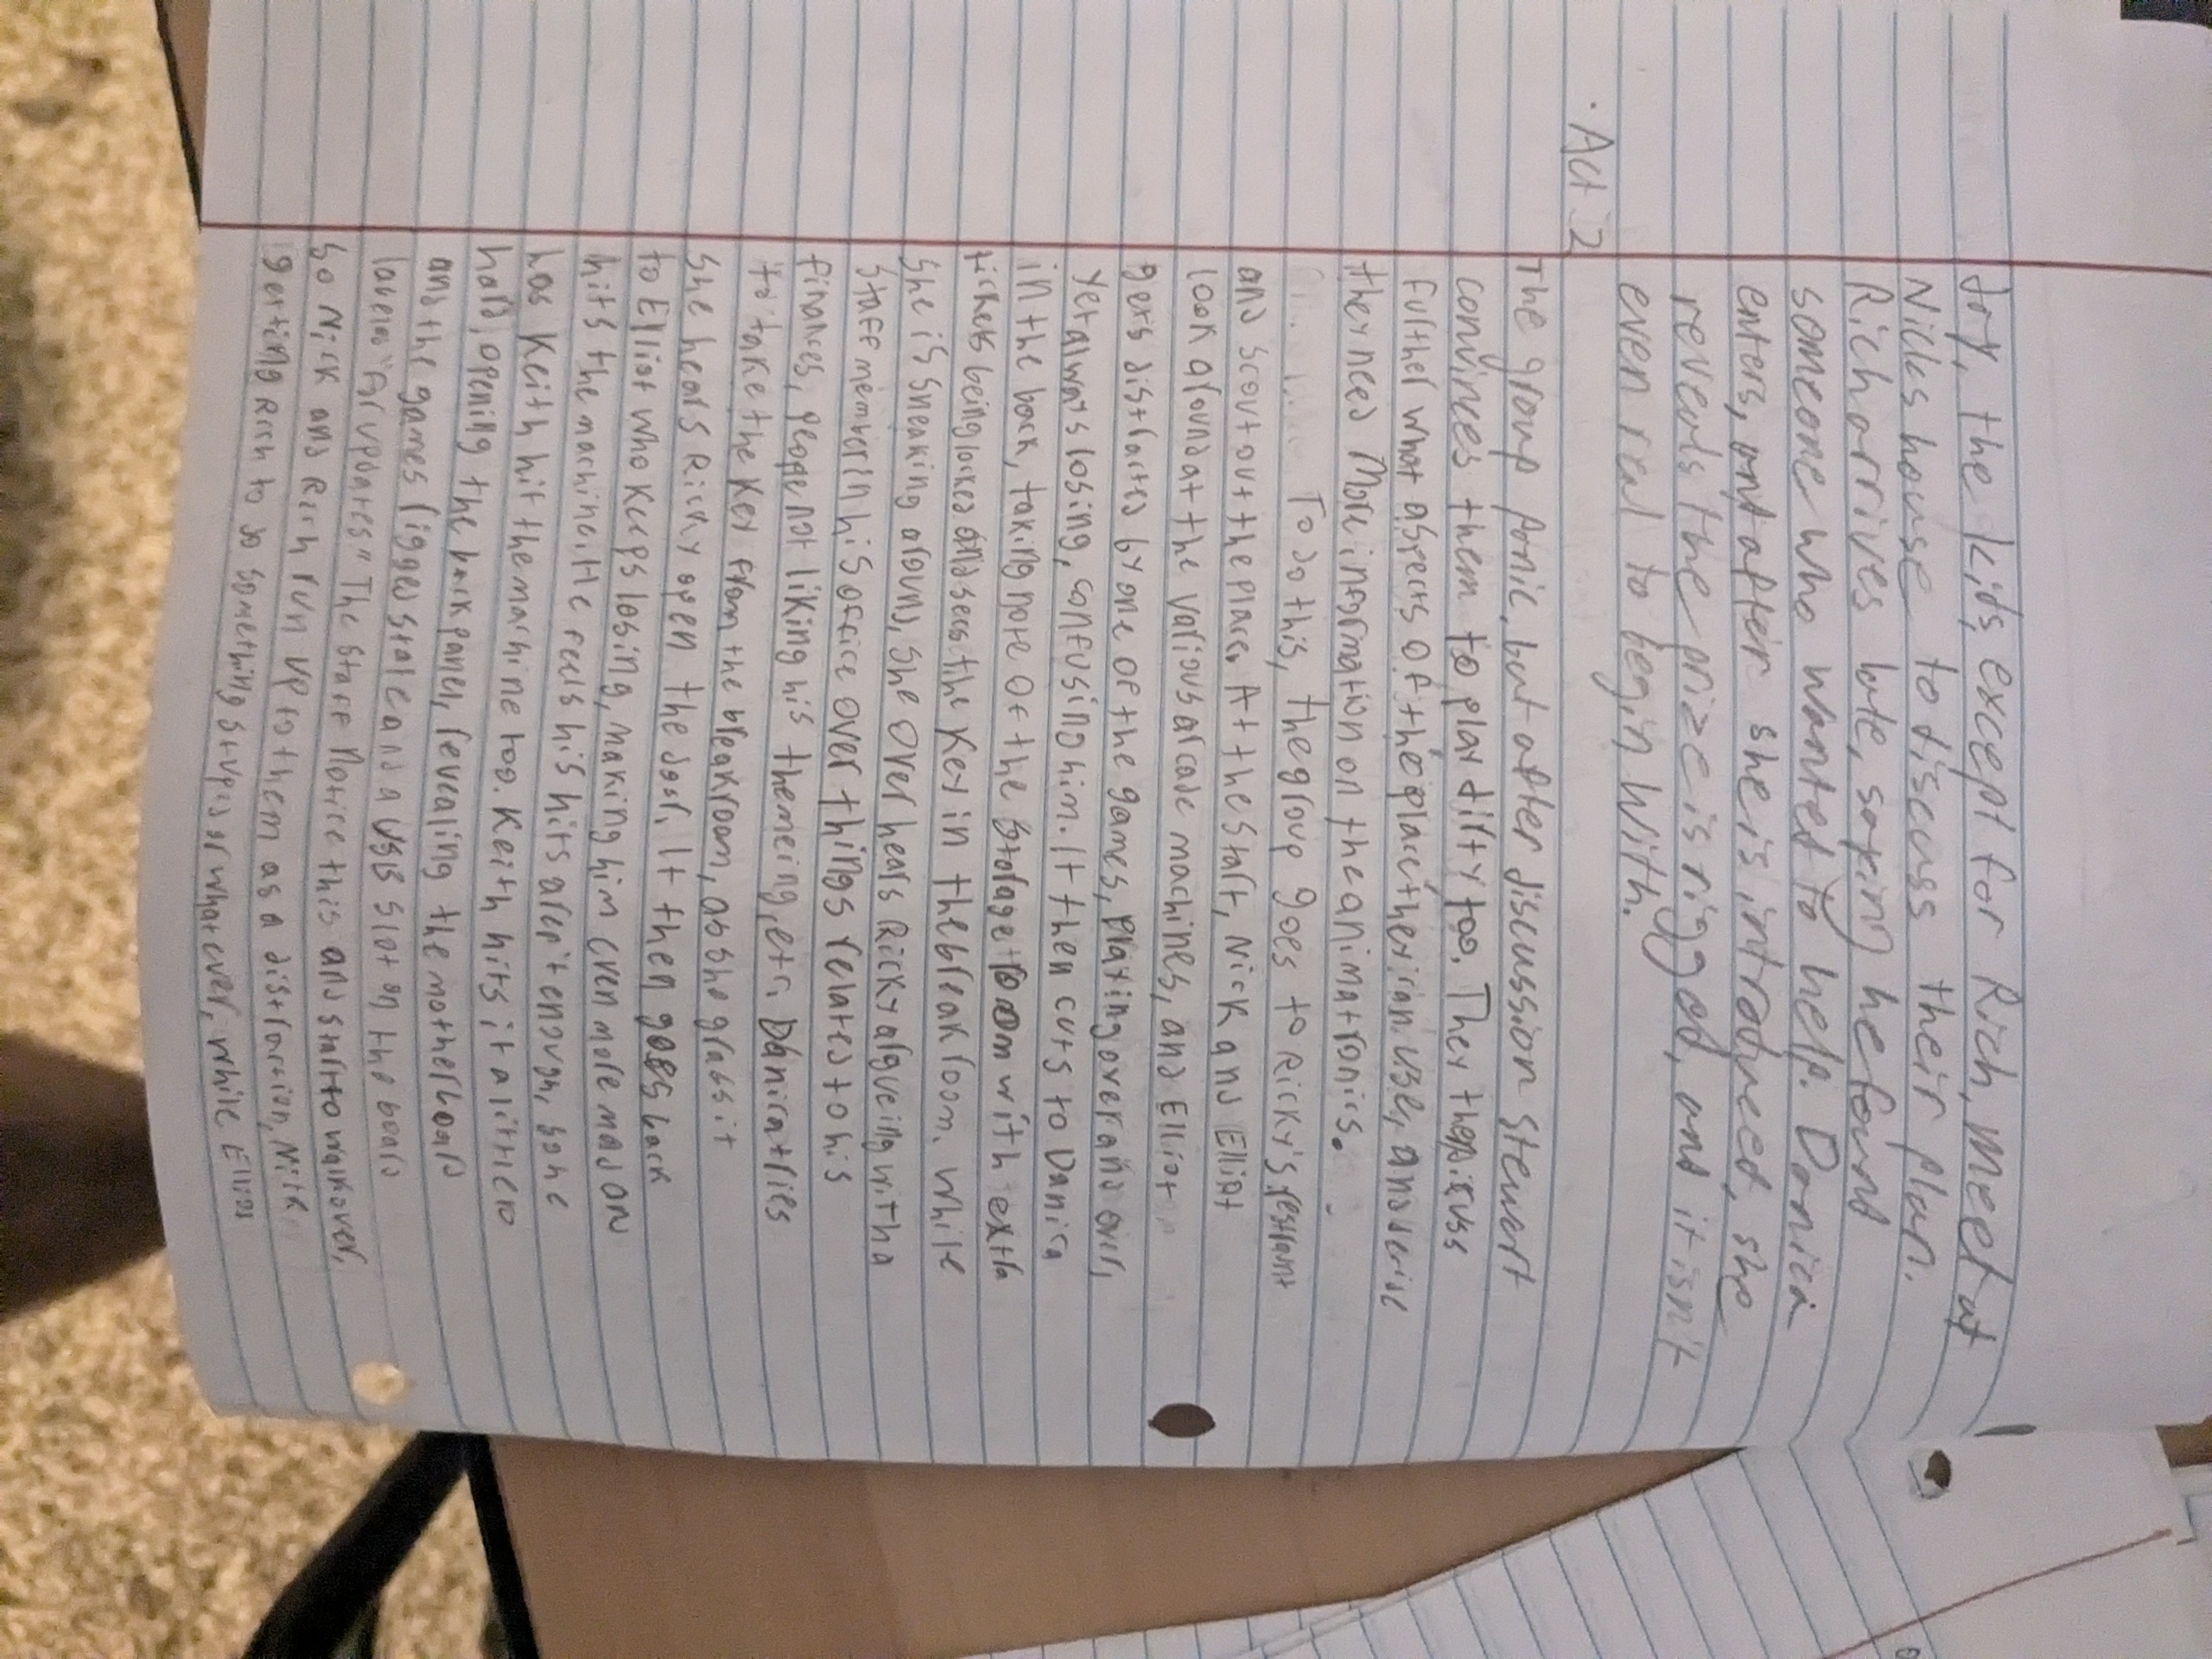 day, the kids, except for Rich, meet at
Nicks house to discuss their plan.
Rich arrives late, saying he found
someone who wanted to help. Danica
enters, and after she is introduced, she
reveals the prize is rigged, and it isn't
even real to begin with.
· Act 2
The group panic, but after discussion Stewart
convinces them to play dirty too. They then discuss
further what aspects of the place they can use, and decide
they need More information on the animatronics.
To do this, the group goes to Ricky's restaurant
and scout out the place. At the start, Nick and Elliot
look around at the various arcade machines, and Elliot
gets distracted by one of the games, playing over and over,
yet always losing, confusing him. It then cuts to Danica
in the back, taking note of the storage room with extra
tickets being locked and sees the key in the breakroom. While
she is sneaking around, she over hears Ricky argueing with a
staff member in his office over things related to his
finances, people not liking his themeing, etc. Danica tries
to take the key from the breakroom, as she grabs it
she hears Ricky open the door. It then goes back
to Elliot who keeps losing, making him even more mad on
hits the machine. He feels his hits aren't enough, so he
has Keith hit the machine too. Keith hits it a little
hard, opening the back panel, revealing the motherboard
and the games rigged state and a USB slot on the board
labeled "for updates" The staff notice this and start to walk over,
so Nick and Rich run up to them as a distraction, Nick
getting Rich to do something stupid or whatever, while Elliot